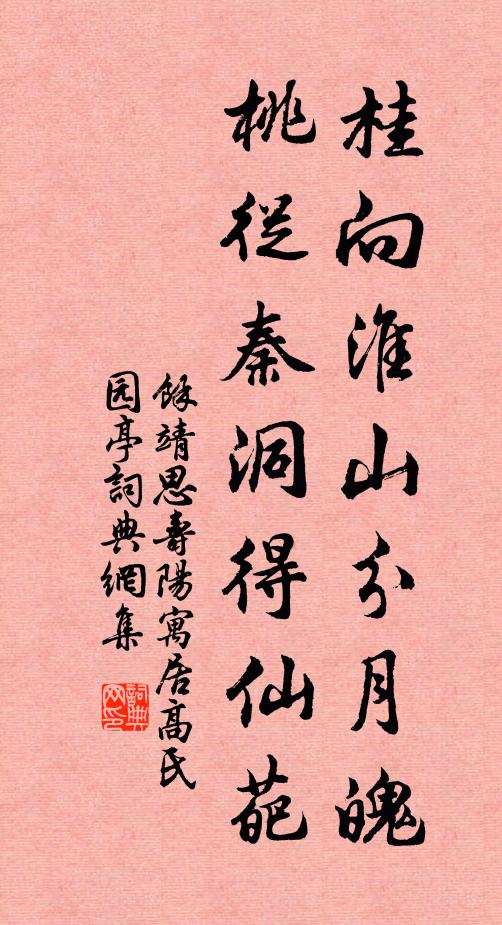 桂向淮山分月魄
桃從秦洞得仙葩
餘靖思壽陽寓居高氏
园亭詞典網集
詞典网印